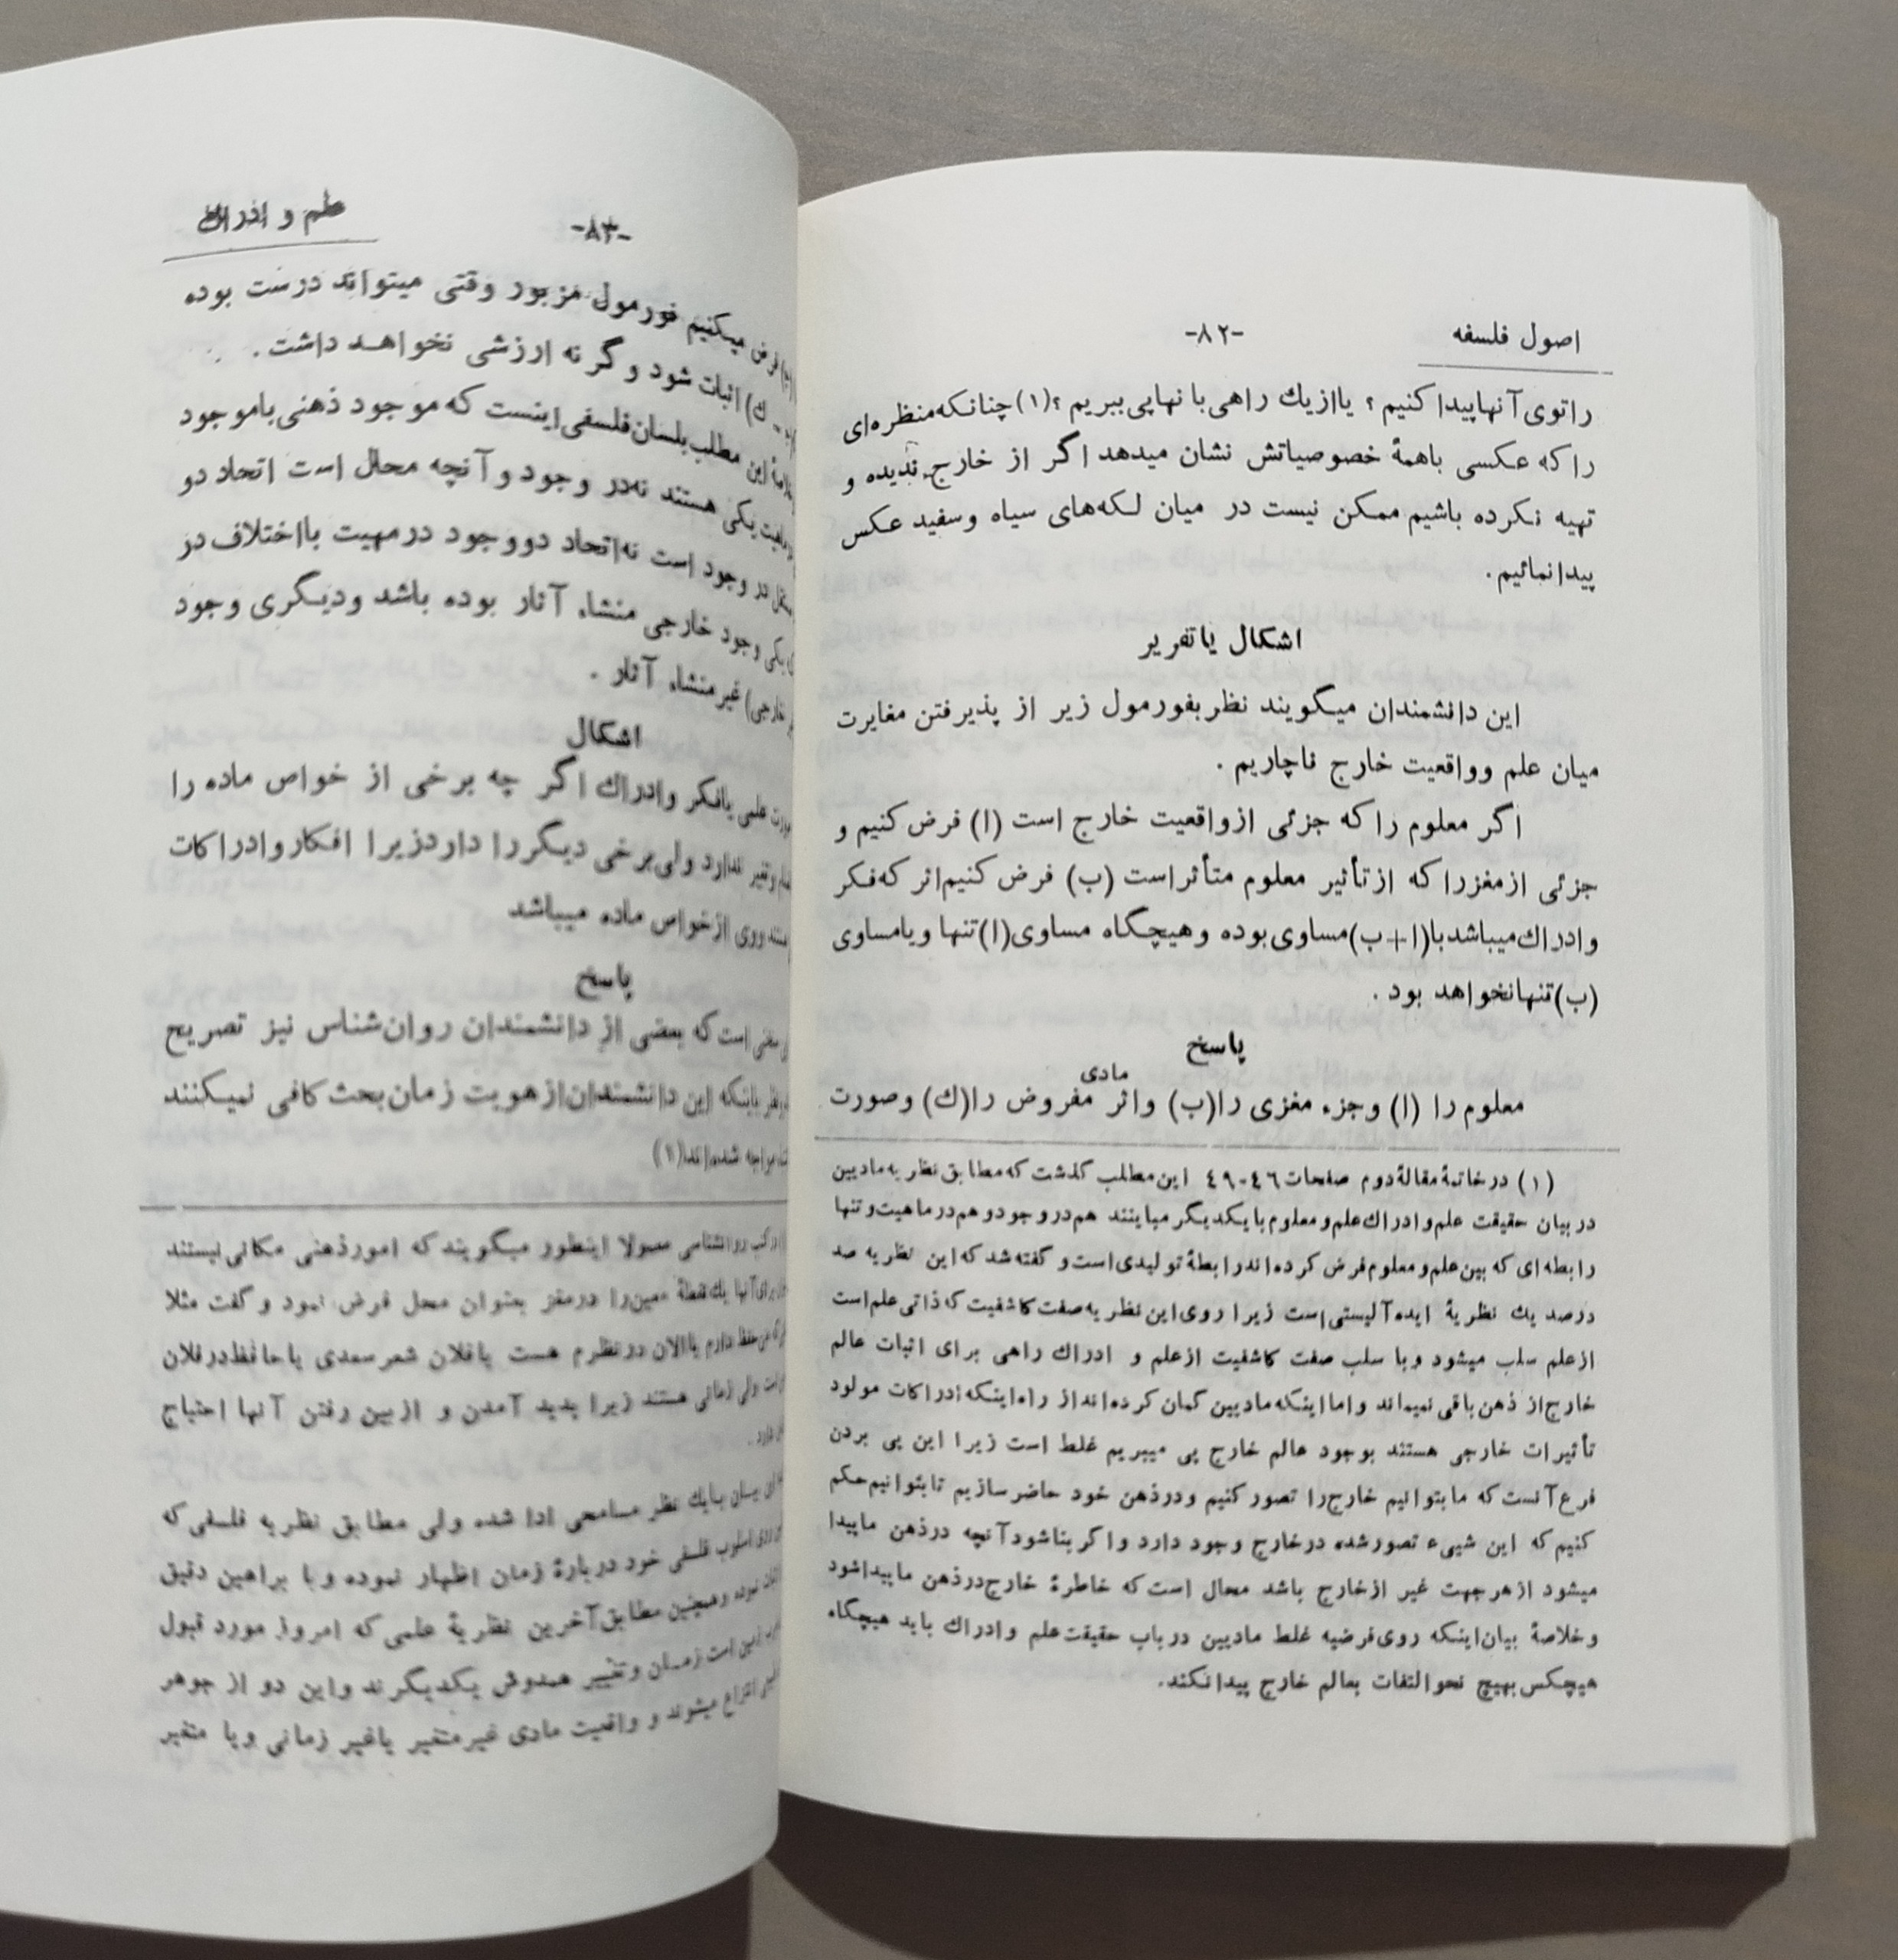 اصول فلسفه
-۸۲-
را توی آنها پیدا کنیم ؟ یا از یك راهی با نهایی ببریم ؟(۱) چنانکه منظره‌ای
را که عکسی باهمهٔ خصوصیاتش نشان میدهد اگر از خارج ندیده و
تهیه نکرده باشیم ممکن نیست در میان لکه‌های سیاه وسفید عکس
پیدا نمائیم .
اشکال یا تقریر
این دانشمندان میگویند نظر بفورمول زیر از پذیرفتن مغایرت
میان علم وواقعیت خارج ناچاریم .
اگر معلوم را که جزئی از واقعیت خارج است (ا) فرض کنیم و
جزئی از مغز را که از تأثیر معلوم متأثر است (ب) فرض کنیم اثر که فکر
وادراك میباشد با (ا+ب) مساوی بوده وهیچگاه مساوی (ا) تنها ویا مساوی
(ب) تنها نخواهد بود .
پاسخ
مادی
معلوم را (ا) وجزء مغزی را (ب) واثر مفروض را (ك) وصورت
(۱) در خاتمهٔ مقالهٔ دوم صفحات ۴۶-۴۹ این مطلب گذشت که مطابق نظریه مادیین
در بیان حقیقت علم و ادراك علم و معلوم با یکدیگر مباینند هم در وجود و هم در ماهیت و تنها
رابطه‌ای که بین علم و معلوم فرض کرده‌اند رابطهٔ تولیدی است و گفته شد که این نظریه صد
درصد یك نظریهٔ ایده‌آلیستی است زیرا روی این نظریه صفت کاشفیت که ذاتی علم است
از علم سلب میشود وبا سلب صفت کاشفیت از علم و ادراك راهی برای اثبات عالم
خارج از ذهن باقی نمیماند و اما اینکه مادیین گمان کرده‌اند از راه اینکه ادراکات مولود
تأثیرات خارجی هستند بوجود عالم خارج پی میبریم غلط است زیرا این پی بردن
فرع آنست که ما بتوانیم خارج را تصور کنیم و در ذهن خود حاضر سازیم تا بتوانیم حکم
کنیم که این شییء تصور شده در خارج وجود دارد و اگر بنا شود آنچه در ذهن ما پیدا
میشود از هر جهت غیر از خارج باشد محال است که خاطرهٔ خارج در ذهن ما پیدا شود
و خلاصهٔ بیان اینکه روی فرضیه غلط مادیین در باب حقیقت علم و ادراك باید هیچگاه
هیچکس بهیچ نحو التفات بعالم خارج پیدا نکند.
علم و ادراك
-۸۳-
فرض میکنیم فورمول مزبور وقتی میتواند درست بوده
اثبات شود و گر نه ارزشی نخواهد داشت .
این مطلب بلسان فلسفی اینست که موجود ذهنی با موجود
یکی هستند نه در وجود و آنچه محال است اتحاد دو
در وجود است نه اتحاد دو وجود در مهیت با اختلاف در
یکی وجود خارجی منشاء آثار بوده باشد و دیگری وجود
خارجی) غیر منشاء آثار .
اشکال
علمی یا فکر وادراك اگر چه برخی از خواص ماده را
ندارد ولی برخی دیگر را دارد زیرا افکار و ادراکات
روی از خواص ماده میباشد
پاسخ
است که بعضی از دانشمندان روان شناس نیز تصریح
باینکه این دانشمندان از هویت زمان بحث کافی نمیکنند
مواجه شده‌اند (۱)
روانشناسی معمولا اینطور میگویند که امور ذهنی مکانی نیستند
برای آنها یك نقطهٔ معین را در مغز بعنوان محل فرض نمود و گفت مثلا
حفظ دارم یا الان در نظرم هست یا فلان شعر سعدی یا حافظ در فلان
ولی زمانی هستند زیرا پدید آمدن و از بین رفتن آنها احتیاج
دارد .
این بیان با یك نظر مسامحی ادا شده ولی مطابق نظریه فلسفی که
روی اسلوب فلسفی خود دربارهٔ زمان اظهار نموده و با براهین دقیق
نموده و همچنین مطابق آخرین نظریهٔ علمی که امروز مورد قبول
است زمان و تغییر همدوش یکدیگرند و این دو از جوهر
انتزاع میشوند و واقعیت مادی غیر متغیر یا غیر زمانی و یا متغیر